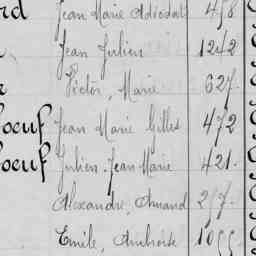 Jean Marie Advodat 458
Jean Julien 1242
Victor, Marie 627.
oeuf Jean Marie Gilles 472
oeuf Julien Jean Marie 421.
Alexandre, Armand 257.
Emile, Ambroise 1055